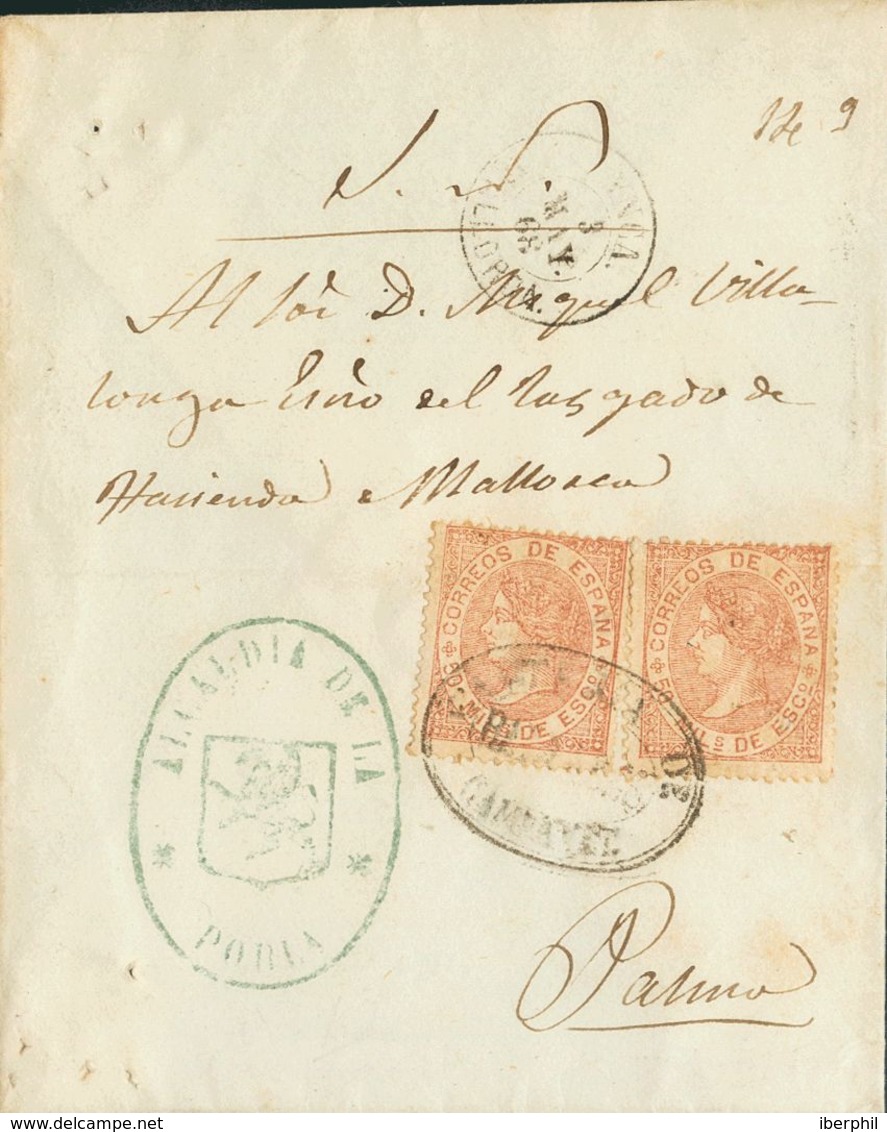 S. N.
YNCA.
3
MAY.
68
Al Sor D. Miguel Villa-
longa Esno del Juzgado de
Hacienda e Mallorca
CORREOS DE ESPAÑA
50 MILs DE ESCo
CORREOS DE ESPAÑA
50 Ls DE ESCo
ALCALDIA DE LA
PORLA
CAMPANET
Palma
delcampe.net
iberphil